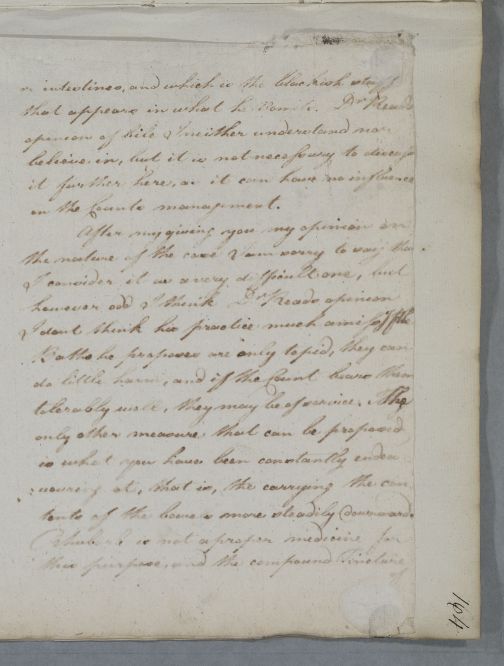 or intestines, and which is the blackish stuff
that appears in what he vomits. Dr. Reads
opinion of Bile I neither understand nor
believe in, but it is not necessary to discuss
it further here, as it can have no influence
on the Counts management.
After my giving you my opinion on
the nature of the case I am sorry to say that
I consider it as a very difficult one, but
however odd I think Dr. Reads opinion
I dont think his practice much amiss. If the
Baths he proposes are only tepid, they can
do little harm, and if the Count bears them
tolerably well, they may be of service. The
only other measure that can be proposed
is what you have been constantly endea
:vouring at, that is, the carrying the con
tents of the bowels more steadily downward.
Rhubarb is not a proper medicine for
this purpose, and the compound Tincture
194